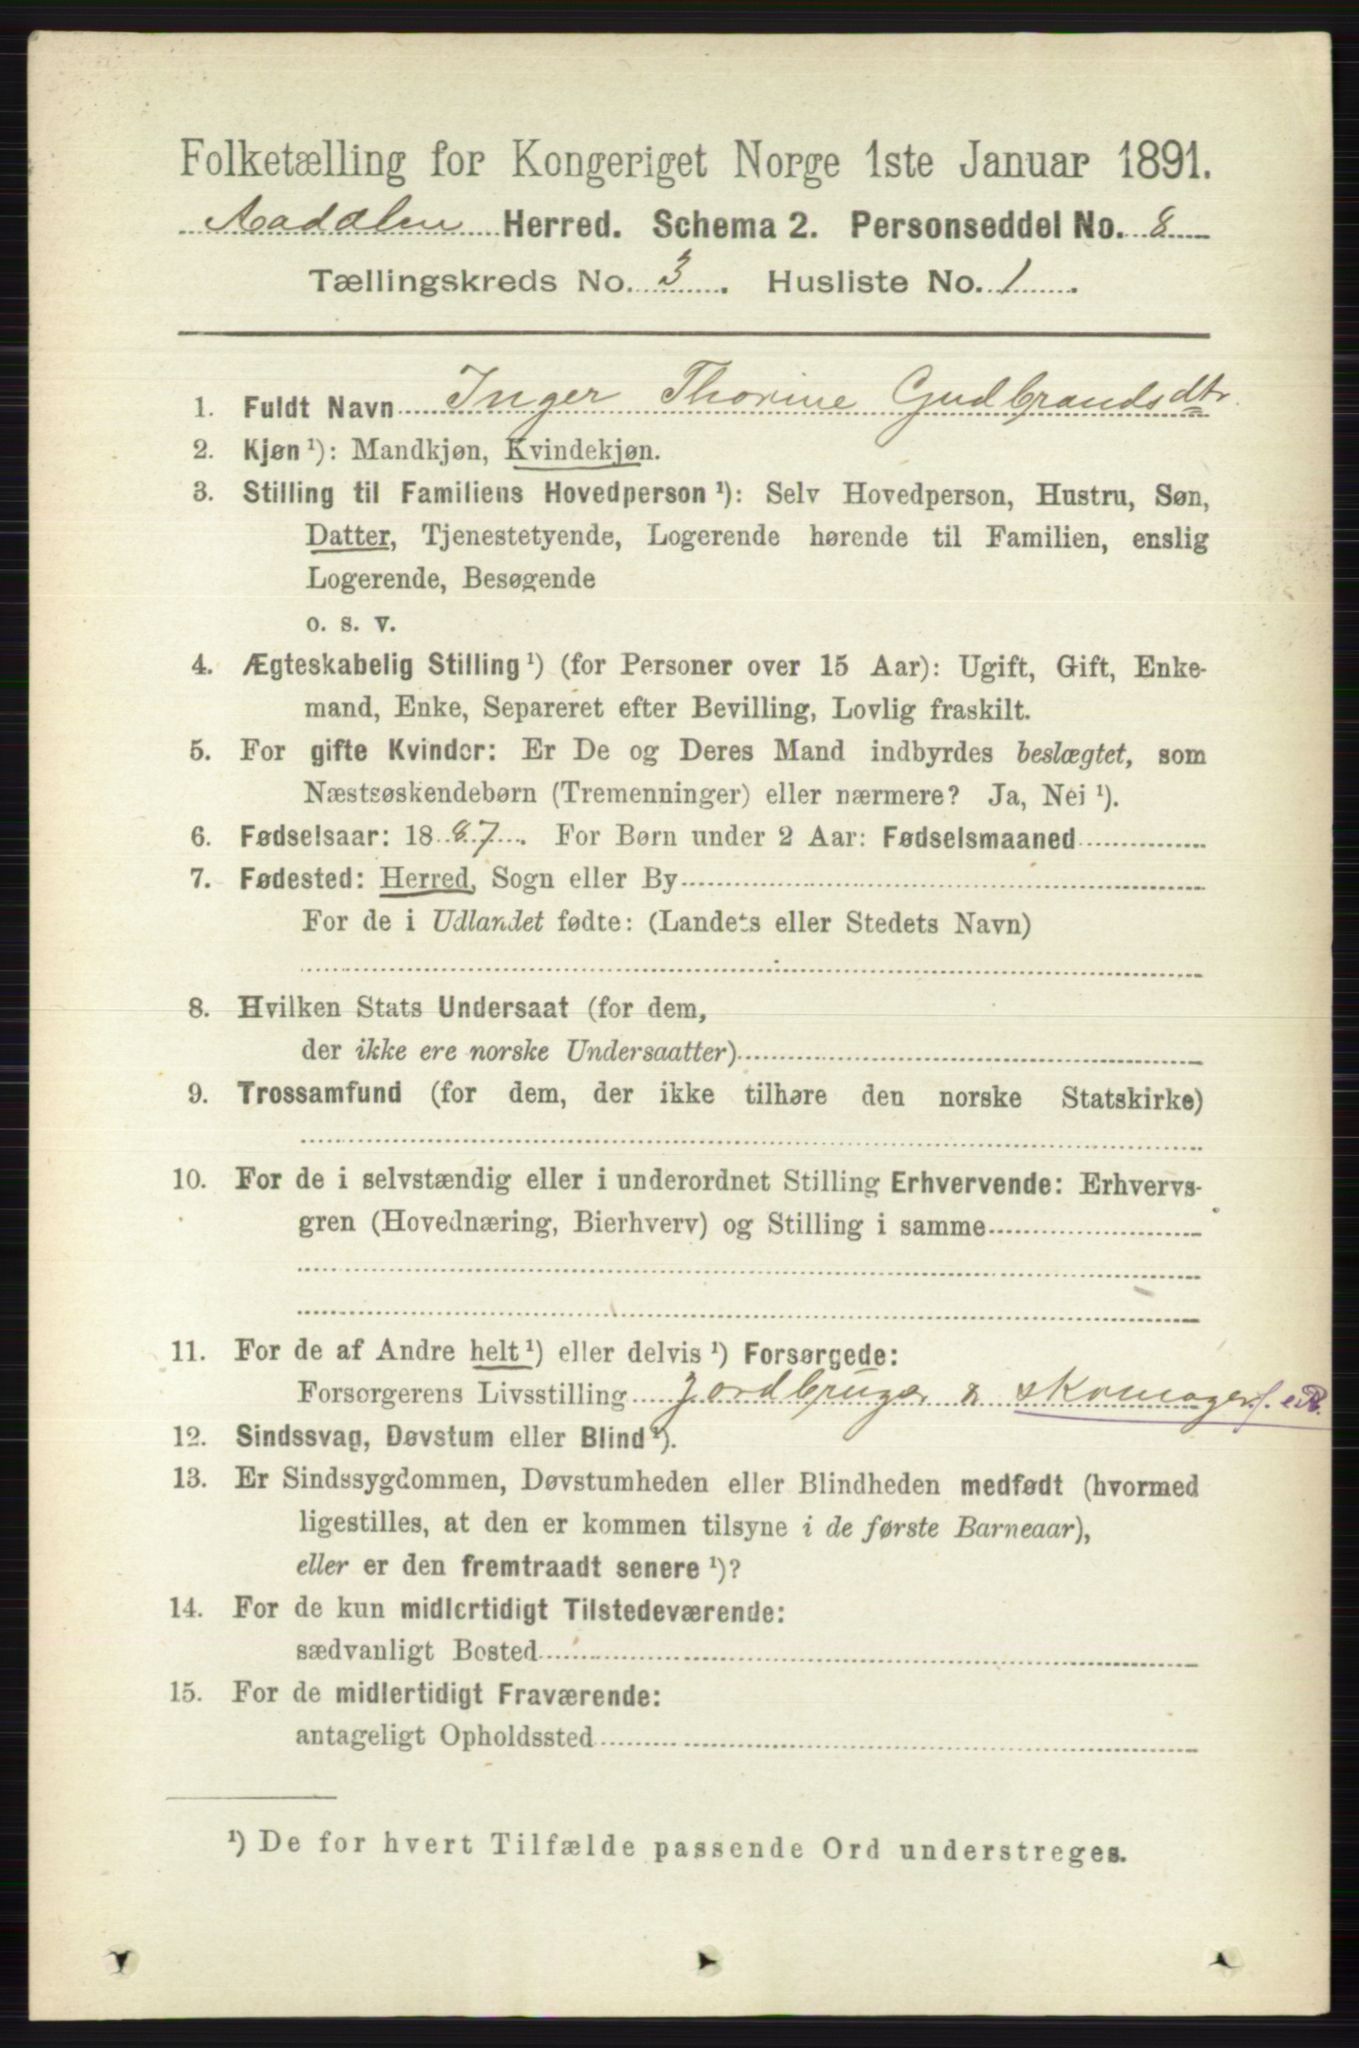 Folketælling for Kongeriget Norge 1ste Januar 1891.
Aadalen Herred. Schema 2. Personseddel No. 8
Tællingskreds No. 3. Husliste No. 1.
1. Fuldt Navn Inger Thorine Gudbrandsdtr.
2. Kjøn ¹): Mandkjøn, Kvindekjøn.
3. Stilling til Familiens Hovedperson ¹): Selv Hovedperson, Hustru, Søn,
Datter, Tjenestetyende, Logerende hørende til Familien, enslig
Logerende, Besøgende
o. s. v.
4. Ægteskabelig Stilling ¹) (for Personer over 15 Aar): Ugift, Gift, Enke-
mand, Enke, Separeret efter Bevilling, Lovlig fraskilt.
5. For gifte Kvinder: Er De og Deres Mand indbyrdes beslægtet, som
Næstsøskendebørn (Tremenninger) eller nærmere? Ja, Nei ¹).
6. Fødselsaar: 1887. For Børn under 2 Aar: Fødselsmaaned
7. Fødested: Herred, Sogn eller By
For de i Udlandet fødte: (Landets eller Stedets Navn)
8. Hvilken Stats Undersaat (for dem,
der ikke ere norske Undersaatter)
9. Trossamfund (for dem, der ikke tilhøre den norske Statskirke)
10. For de i selvstændig eller i underordnet Stilling Erhvervende: Erhvervs-
gren (Hovednæring, Bierhverv) og Stilling i samme
11. For de af Andre helt ¹) eller delvis ¹) Forsørgede:
Forsørgerens Livsstilling Jordbruger & skomager f. e. R.
12. Sindssvag, Døvstum eller Blind ¹).
13. Er Sindssygdommen, Døvstumheden eller Blindheden medfødt (hvormed
ligestilles, at den er kommen tilsyne i de første Barneaar),
eller er den fremtraadt senere ¹)?
14. For de kun midlertidigt Tilstedeværende:
sædvanligt Bosted
15. For de midlertidigt Fraværende:
antageligt Opholdssted
¹) De for hvert Tilfælde passende Ord understreges.